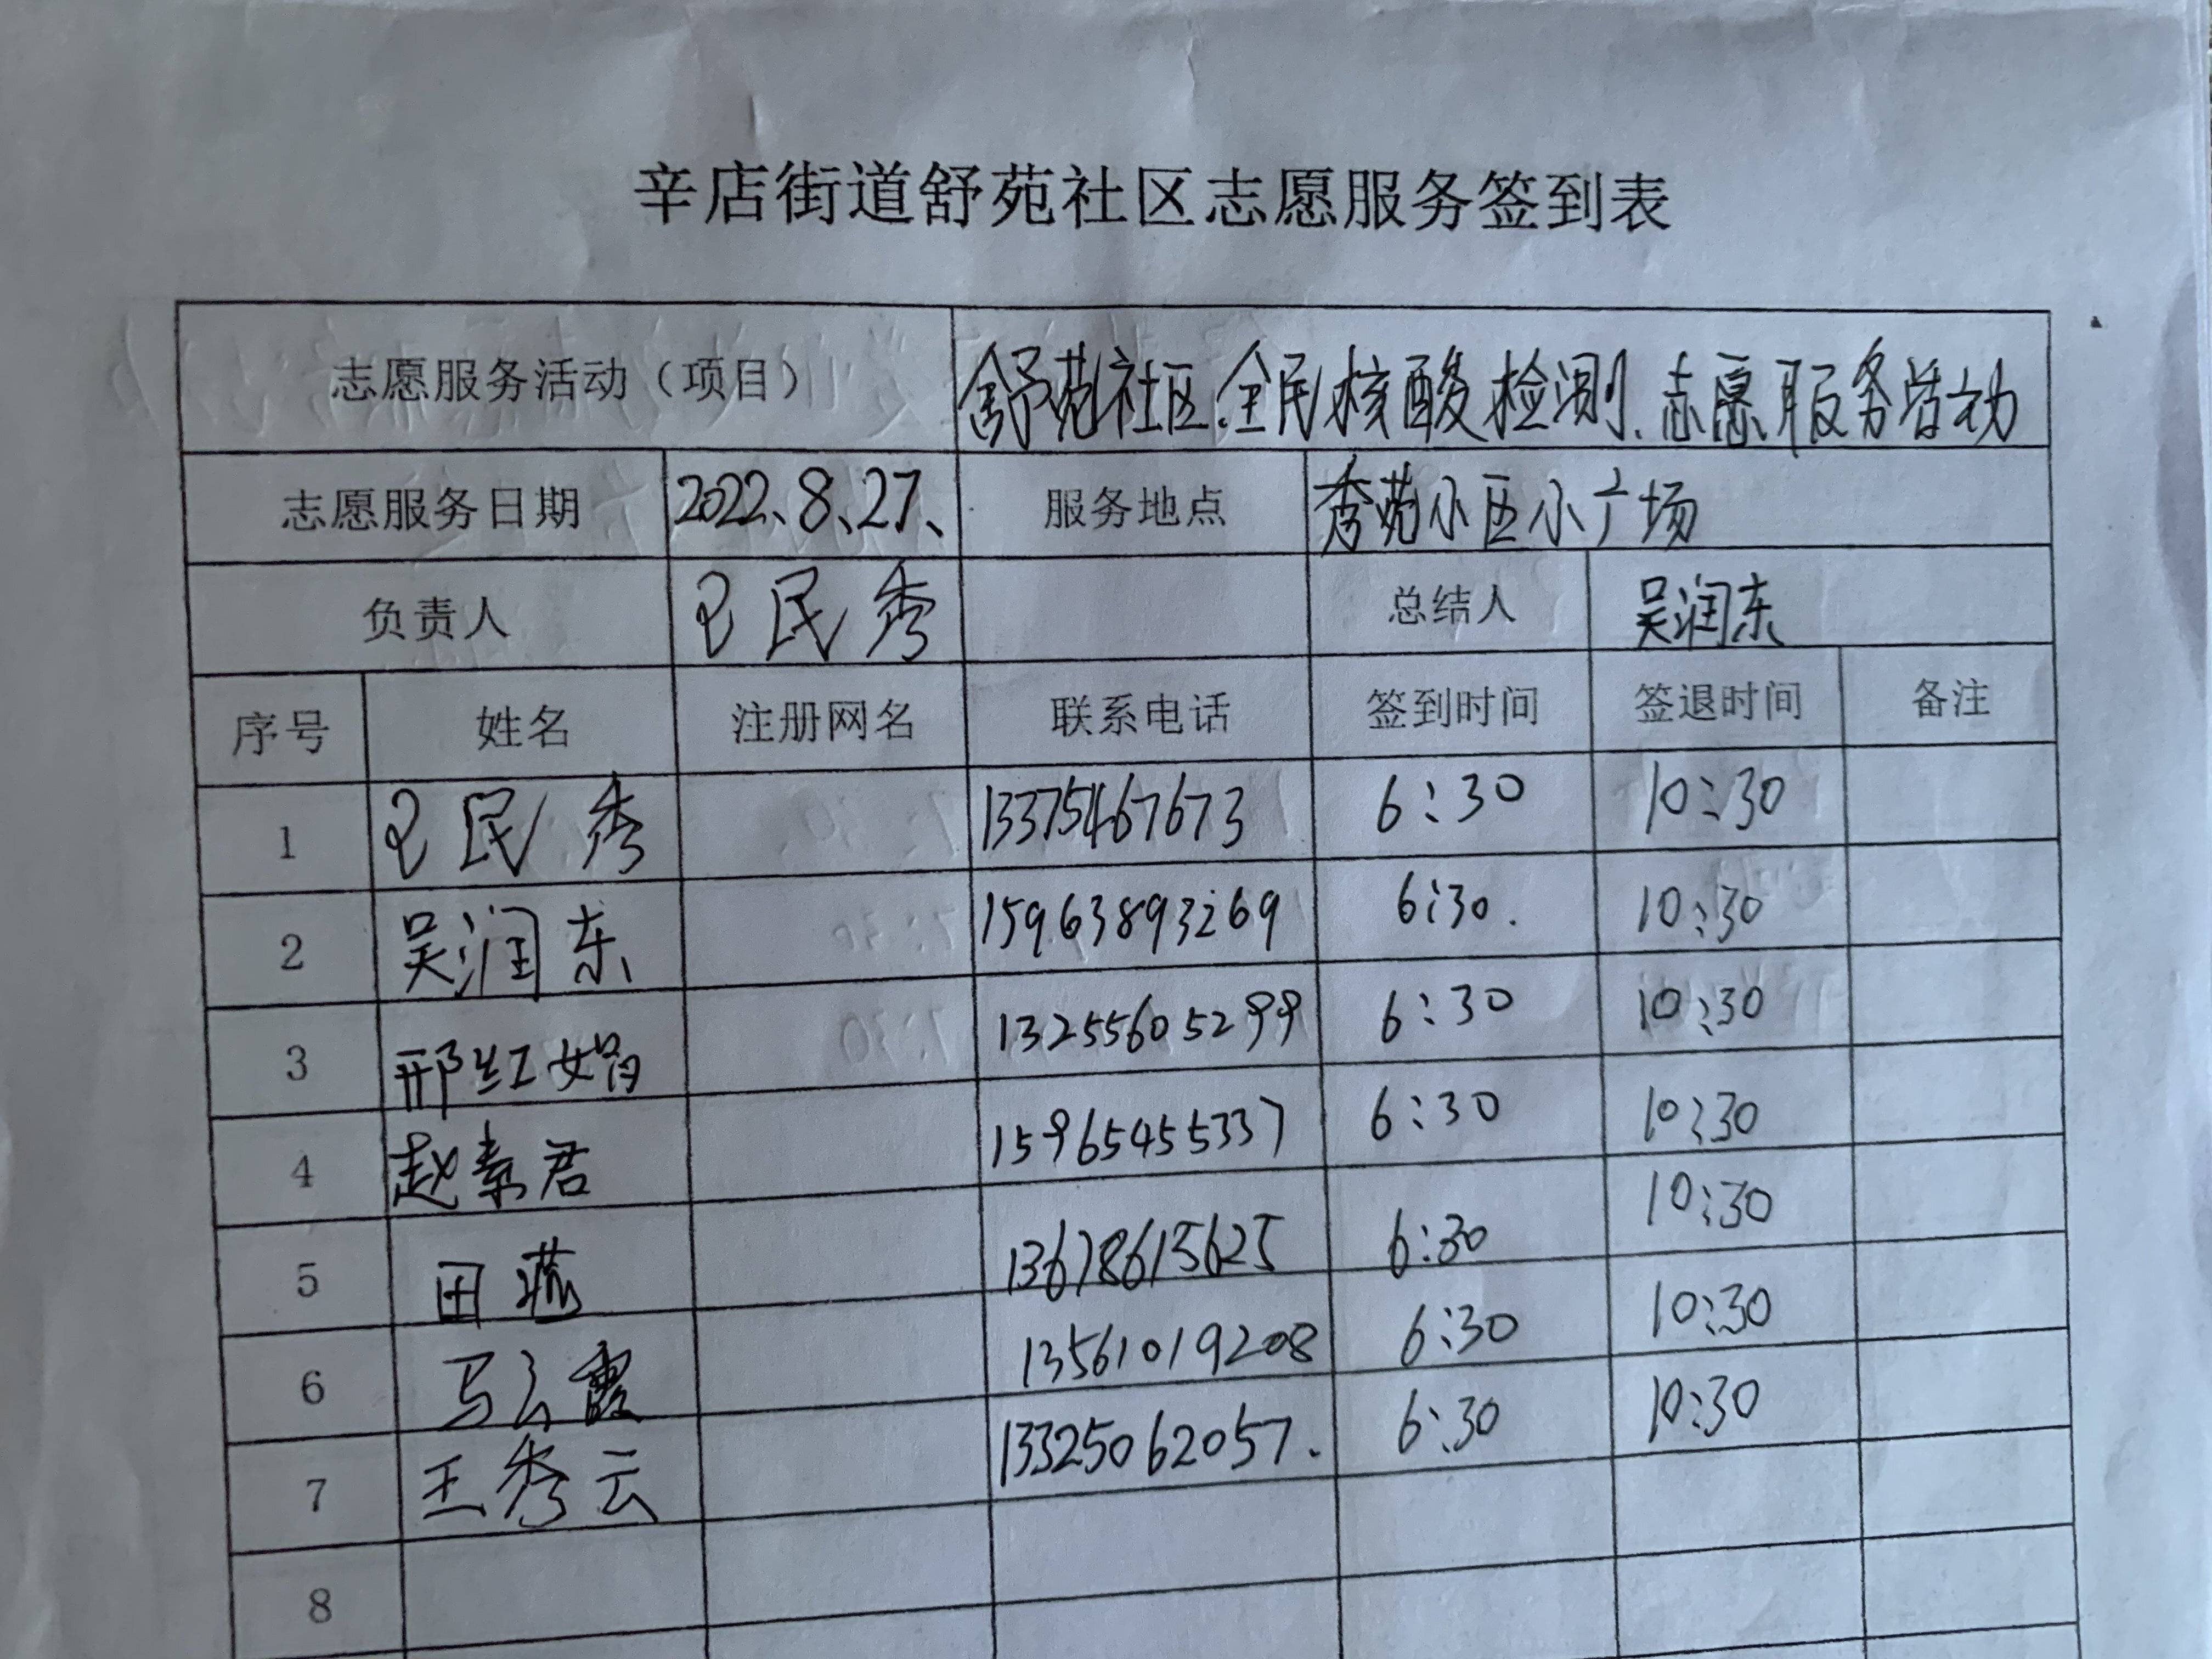 辛店街道舒苑社区志愿服务签到表
志愿服务活动（项目） 舒苑社区.全民核酸检测.志愿服务活动
志愿服务日期 2022、8、27、 服务地点 秀苑小区小广场
负责人 民秀 总结人 吴润东
序号 姓名 注册网名 联系电话 签到时间 签退时间 备注
1 民秀 13375467673 6:30 10:30
2 吴润东 15963893269 6:30. 10:30
3 邢红娟 13255605299 6:30 10:30
4 赵素君 15965455337 6:30 10:30
5 田 13678615625 6:30 10:30
6 马云霞 13561019208 6:30 10:30
7 王秀云 13325062057. 6:30 10:30
8